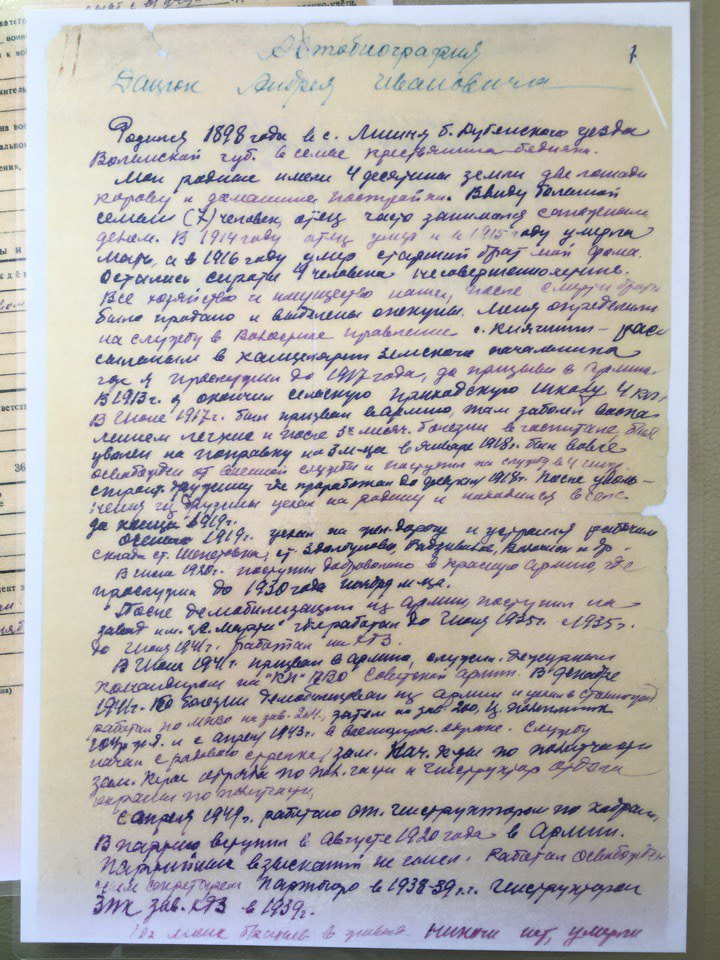 Автобиография
7
Дацюк Андрея Ивановича
Родился 1898 года в с. Лишня б. Дубенского уезда
Волинской губ. в семье крестьянина бедняка.
Мои родные имели 4 десятины земли две лошади
корову и домашние постройки. Ввиду большой
семьи (7) человек, отец часто занимался сапожным
делом. В 1914 году отец умер и в 1915 году умерла
мать, а в 1916 году умер старший брат мой
Остались сироти 4 человека несовершеннолетние.
Все хозяйство и имущество наше, после смерти брата
было продано и выделены опекуны. Меня определили
на службу в Волосное правление с. рас
сыльным в канцелярии Земского начальника
где я прослужил до 1917 года, до призыва в армию
В 1913 г. я окончил сельскую приходскую школу 4 кл.
В Июне 1917 г. был призван в армию, там заболел воспа
лением легких и после 5 месяч. болезни в госпитале был
уволен на поправку на 3 м-ца в январе 1918 г. был вовсе
освобожден от военной службы и поступил на службу в 4
строит. дружину где проработал до 1918 г. После уволь
нения из дружины уехал на родину и находился в селе
до конца 1919 г.
Осенью 1919 г. уехал на жел. дорогу и устроился рабочим
склада ст. Шепетовка, ст. Здолбуново, Радзивилов, и др.
В июле 1920 г. поступил добровольно в Красную Армию, где
прослужил до 1930 года ноябрь м-ца.
После демобилизации из армии, поступил на
завод им. "8 Марта" где работал до Июня 1935 г. с 1935 г.
до Июня 1941 г. работал на КТЗ.
В Июне 1941 г. призван в армию, служил дежурным
командиром на "КП" ПВО Советской армии. В декабре
1941 г. по болезни демобилизован из армии и уехал в Сталинград
работал по МПВО на зав. 264, затем на зав. 200,
и с апреля 1943 г. в военизиров. охране. Службу
начал с рядового стрелка, зам. Нач. к-ды по политчасти
зам. отряда по пол. части и инструктор отдела
охраны по политчасти,
с апреля 1949 г. работаю ст. инструктором по кадрам,
В партию вступил в Августе 1920 года в Армии.
Партийных взысканий не имел. Работал освобожден
ным секретарем Партбюро в 1938-39 г.г. инструктором
ЗПК зав. КТЗ в 1939 г.
в живых никого нет, умерли